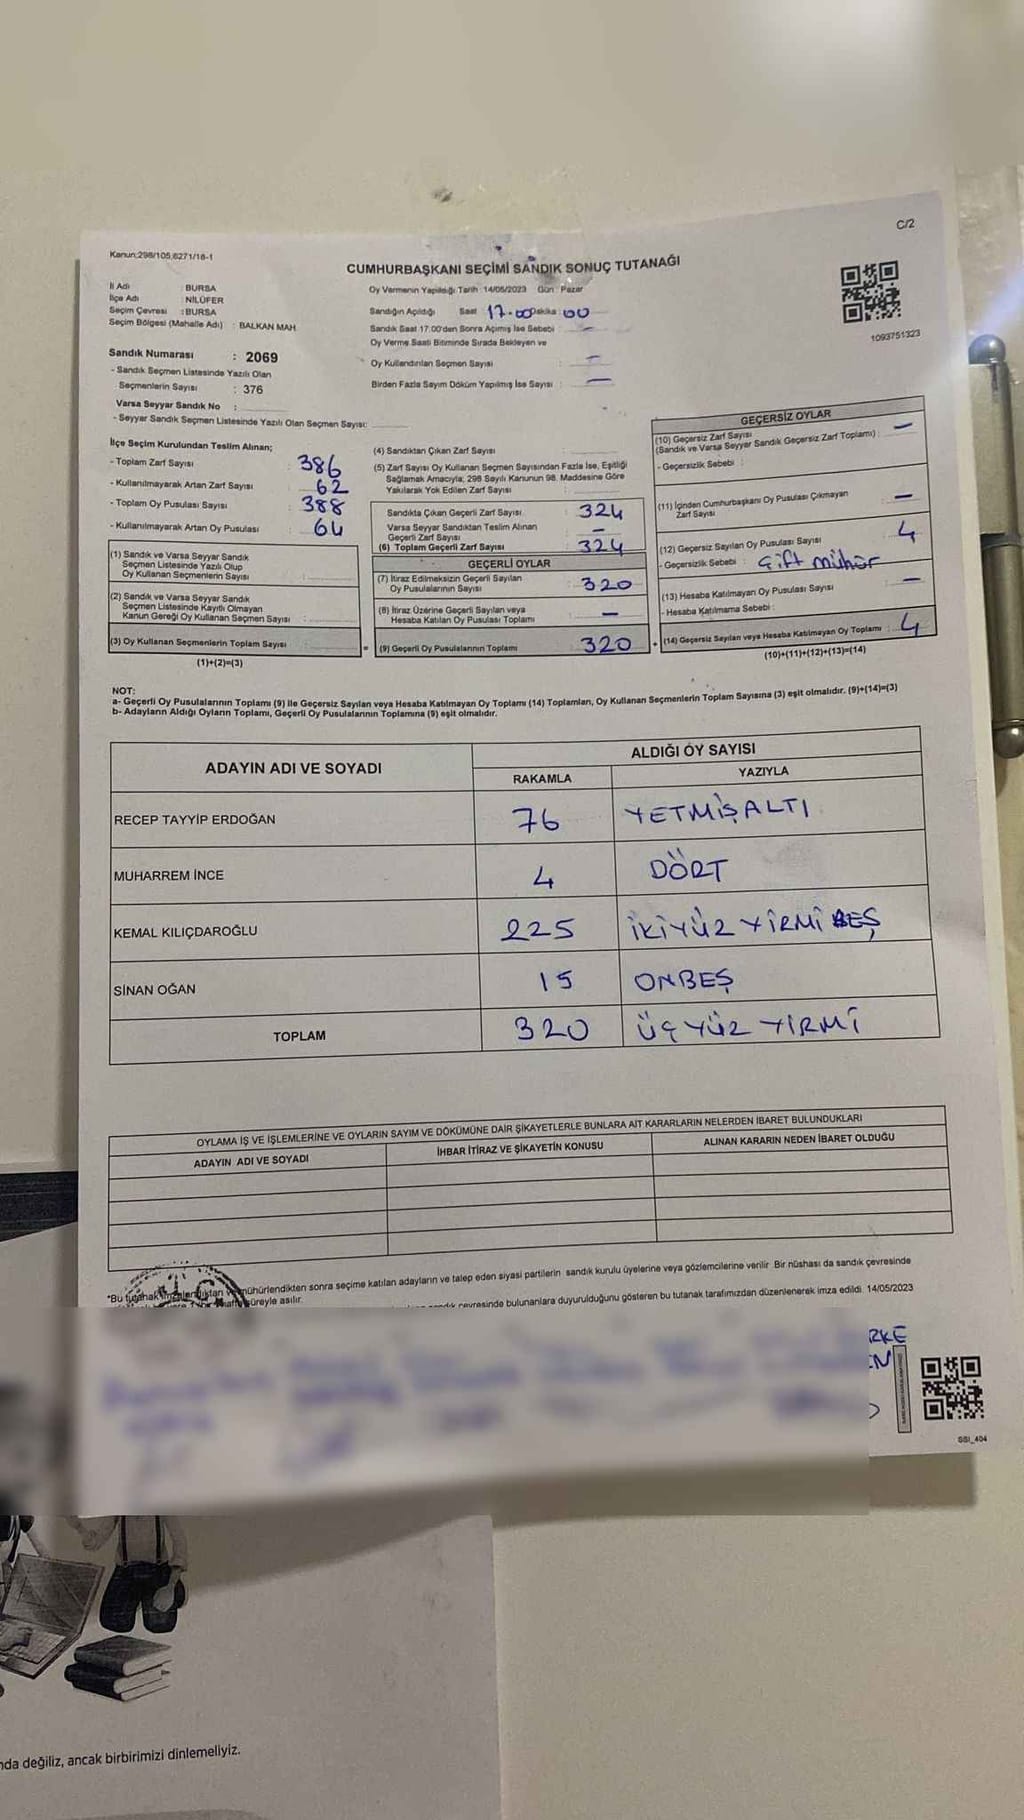 C/2
Kanun:298/105,6271/18-1
CUMHURBAŞKANI SEÇİMİ SANDIK SONUÇ TUTANAĞI
İl Adı : BURSA
İlçe Adı : NİLÜFER
Seçim Çevresi : BURSA
Seçim Bölgesi (Mahalle Adı) : BALKAN MAH
Sandık Numarası : 2069
- Sandık Seçmen Listesinde Yazılı Olan
Seçmenlerin Sayısı : 376
Varsa Seyyar Sandık No :
- Seyyar Sandık Seçmen Listesinde Yazılı Olan Seçmen Sayısı:
Oy Vermenin Yapıldığı Tarih 14/05/2023 Gün : Pazar
Sandığın Açıldığı Saat 17.00 Dakika 00
Sandık Saat 17.00'den Sonra Açımış İse Sebebi : -
Oy Verme Saati Bitiminde Sırada Bekleyen ve
Oy Kullandırılan Seçmen Sayısı : -
Birden Fazla Sayım Döküm Yapılmış İse Sayısı : -
1093751323
İlçe Seçim Kurulundan Teslim Alınan;
- Toplam Zarf Sayısı : 386
- Kullanılmayarak Artan Zarf Sayısı : 62
- Toplam Oy Pusulası Sayısı : 388
- Kullanılmayarak Artan Oy Pusulası : 64
(1) Sandık ve Varsa Seyyar Sandık
Seçmen Listesinde Yazılı Olup
Oy Kullanan Seçmenlerin Sayısı :
(2) Sandık ve Varsa Seyyar Sandık
Seçmen Listesinde Kayıtlı Olmayan
Kanun Gereği Oy Kullanan Seçmen Sayısı :
(3) Oy Kullanan Seçmenlerin Toplam Sayısı :
(1)+(2)=(3)
(4) Sandıktan Çıkan Zarf Sayısı :
(5) Zarf Sayısı Oy Kullanan Seçmen Sayısından Fazla İse, Eşitliği
Sağlamak Amacıyla; 298 Sayılı Kanunun 98. Maddesine Göre
Yakılarak Yok Edilen Zarf Sayısı :
Sandıkta Çıkan Geçerli Zarf Sayısı : 324
Varsa Seyyar Sandıktan Teslim Alınan
Geçerli Zarf Sayısı : -
(6) Toplam Geçerli Zarf Sayısı : 324
GEÇERLİ OYLAR
(7) İtiraz Edilmeksizin Geçerli Sayılan
Oy Pusulalarının Sayısı : 320
(8) İtiraz Üzerine Geçerli Sayılan veya
Hesaba Katılan Oy Pusulası Toplamı : -
= (9) Geçerli Oy Pusulalarının Toplamı : 320 +
GEÇERSİZ OYLAR
(10) Geçersiz Zarf Sayısı
(Sandık ve Varsa Seyyar Sandık Geçersiz Zarf Toplamı) : -
- Geçersizlik Sebebi :
(11) İçinden Cumhurbaşkanı Oy Pusulası Çıkmayan
Zarf Sayısı : -
(12) Geçersiz Sayılan Oy Pusulası Sayısı : 4
- Geçersizlik Sebebi : Çift mühür
(13) Hesaba Katılmayan Oy Pusulası Sayısı : -
- Hesaba Katılmama Sebebi :
(14) Geçersiz Sayılan veya Hesaba Katılmayan Oy Toplamı : 4
(10)+(11)+(12)+(13)=(14)
NOT:
a- Geçerli Oy Pusulalarının Toplamı (9) ile Geçersiz Sayılan veya Hesaba Katılmayan Oy Toplamı (14) Toplamları, Oy Kullanan Seçmenlerin Toplam Sayısına (3) eşit olmalıdır. (9)+(14)=(3)
b- Adayların Aldığı Oyların Toplamı, Geçerli Oy Pusulalarının Toplamına (9) eşit olmalıdır.
ADAYIN ADI VE SOYADI ALDIĞI OY SAYISI
RAKAMLA YAZIYLA
RECEP TAYYİP ERDOĞAN 76 YETMİŞALTI
MUHARREM İNCE 4 DÖRT
KEMAL KILIÇDAROĞLU 225 İKİYÜZ YİRMİ BEŞ
SİNAN OĞAN 15 ONBEŞ
TOPLAM 320 ÜÇYÜZ YİRMİ
OYLAMA İŞ VE İŞLEMLERİNE VE OYLARIN SAYIM VE DÖKÜMÜNE DAİR ŞİKAYETLERLE BUNLARA AİT KARARLARIN NELERDEN İBARET BULUNDUKLARI
ADAYIN ADI VE SOYADI İHBAR İTİRAZ VE ŞİKAYETİN KONUSU ALINAN KARARIN NEDEN İBARET OLDUĞU
*Bu tutanak imzalandıktan ve mühürlendikten sonra seçime katılan adayların ve talep eden siyasi partilerin sandık kurulu üyelerine veya gözlemcilerine verilir. Bir nüshası da sandık çevresinde
süreyle asılır.
çevresinde bulunanlara duyurulduğunu gösteren bu tutanak tarafımızdan düzenlenerek imza edildi. 14/05/2023
RKE
EN
GSI_404
nda değiliz, ancak birbirimizi dinlemeliyiz.